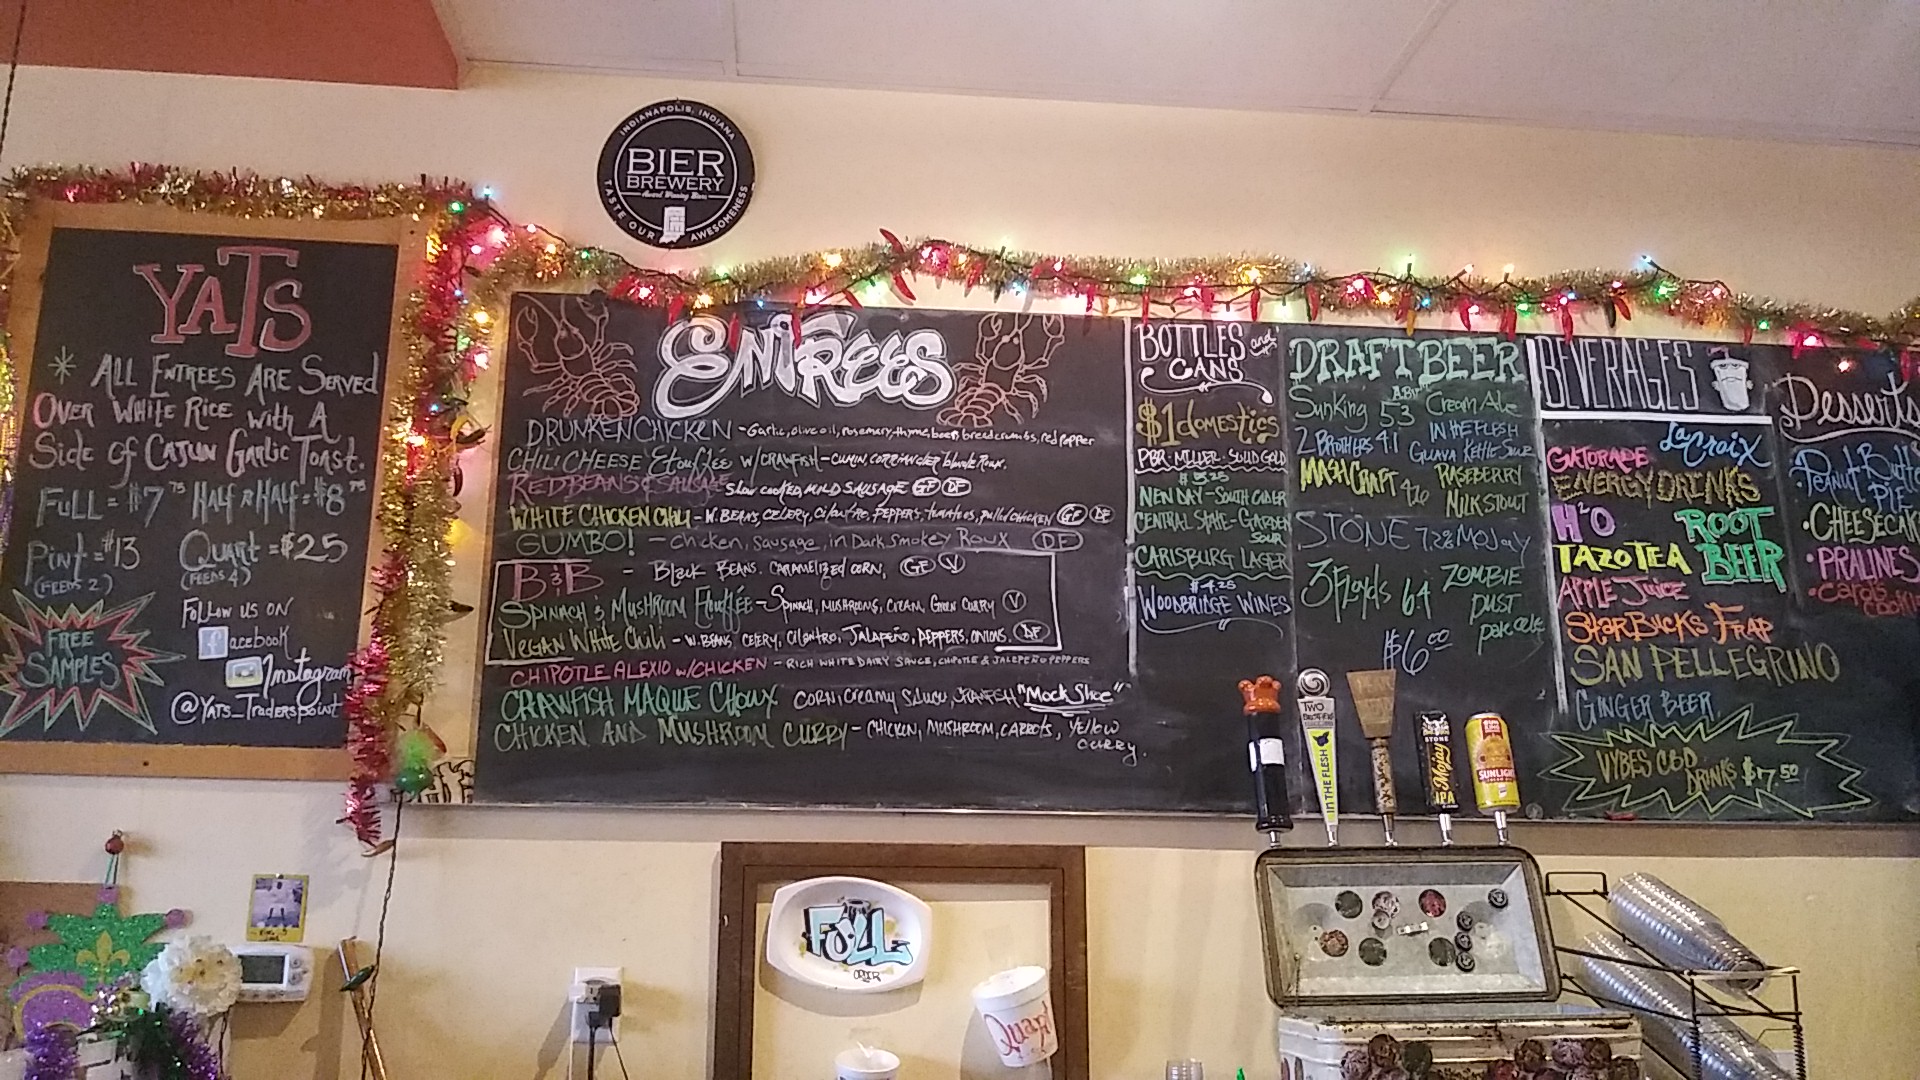 YATS
* ALL ENTREES ARE SERVED
OVER WHITE RICE WITH A
SIDE OF CAJUN GARLIC TOAST.
FULL = $7 75 HALF N HALF = $8 75
PINT = $13 QUART = $25
(FEEDS 2) (FEEDS 4)
FREE
SAMPLES
FOLLOW US ON
facebook
Instagram
@YATS_TRADERSPOINT
INDIANAPOLIS, INDIANA
BIER
BREWERY
Award Winning Beers
TASTE OUR AWESOMENESS
ENTREES
DRUNKEN CHICKEN - Garlic, olive oil, rosemary, thyme, beer, breadcrumbs, red pepper
CHILI CHEESE Etouffée W/CRAWFISH - CUMIN, CORRIANDER blonde Roux.
RED BEANS & SAUSAGE Slow cooked, MILD SAUSAGE GF DF
WHITE CHICKEN CHILI - W. BEANS, CELERY, Cilantro, PEPPERS, tomatoes, pulled CHICKEN GF DF
GUMBO! - chicken, sausage, in Dark Smokey Roux DF
B & B - Black BEANS. CARAMELIZED CORN, GF V
SPINACH & MUSHROOM Etouffée - SPINACH, MUSHROOMS, CREAM, GREEN CURRY V
VEGAN WHITE CHILI - W. BEANS, CELERY, CILANTRO, JALAPEÑO, PEPPERS, ONIONS. DF
CHIPOTLE ALEXIO W/CHICKEN - RICH WHITE DAIRY SAUCE, CHIPOTLE & JALEPEÑO PEPPERS
CRAWFISH MAQUE CHOUX CORN, creamy SAUCE, CRAWFISH "Mock Shoe"
CHICKEN AND MUSHROOM CURRY - CHICKEN, MUSHROOM, CARROTS, Yellow
curry.
BOTTLES and
CANS
$1 domestics
PBR - MILLER - SOLID GOLD
$5.25
NEW DAY - SOUTH CIDER
CENTRAL STATE - GARDEN
SOUR
CARLSBURG LAGER
$4.25
WOODBRIDGE WINES
DRAFT BEER
ABV
SunKing 53 Cream Ale
2 BROTHERS 41 IN THE FLESH
GUAVA KETTLE SOUR
MASHCRAFT 46 RASEBERRY
MILK STOUT
STONE 7.2% MOJAY
3 Floyds 6.4 ZOMBIE
DUST
pale ale
$6.00
BEVERAGES
LaCroix
GATORADE
ENERGY DRINKS
H2O
ROOT
BEER
TAZO TEA
APPLE JUICE
STARBUCKS FRAP
SAN PELLEGRINO
GINGER BEER
VYBES CBD
DRINKS $7.50
Desserts
• Peanut Butte
PIE
• CHEESECAKE
• PRALINES
• Carols
cookie
TWO
BROTHERS
IN THE FLESH
STONE
Mojay
IPA
SUNLIGHT
FULL
ORDER
Quart